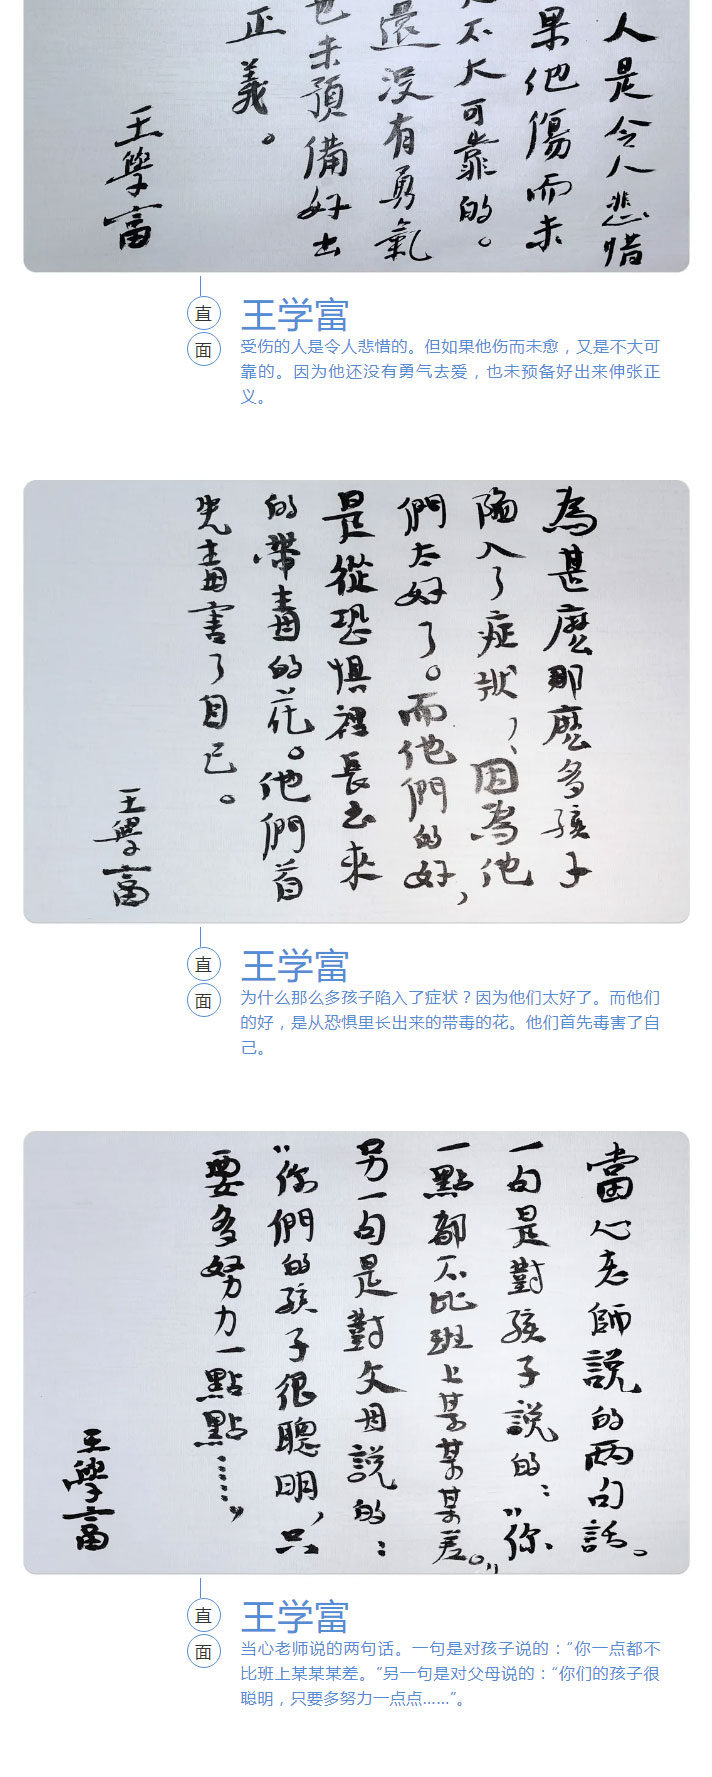 人是令人悲惜
果他傷而未
是不大可靠的。
還没有勇氣
也未預備好出
正義。
王學富
直面
王学富
受伤的人是令人悲惜的。但如果他伤而未愈，又是不大可
靠的。因为他还没有勇气去爱，也未预备好出来伸张正
义。
為甚麽那麽多孩子
陷入了症狀，因為他
們太好了。而他們的好，
是從恐惧裡長出來
的帶毒的花。他們首
先毒害了自已。
王學富
直面
王学富
为什么那么多孩子陷入了症状？因为他们太好了。而他们
的好，是从恐惧里长出来的带毒的花。他们首先毒害了自
己。
當心老師説的两句話。
一句是對孩子説的：“你
一點都不比班上某某某差。”
另一句是對父母説的：
“你們的孩子很聰明，只
要多努力一點點……”
王學富
直面
王学富
当心老师说的两句话。一句是对孩子说的：“你一点都不
比班上某某某差。”另一句是对父母说的：“你们的孩子很
聪明，只要多努力一点点……”。